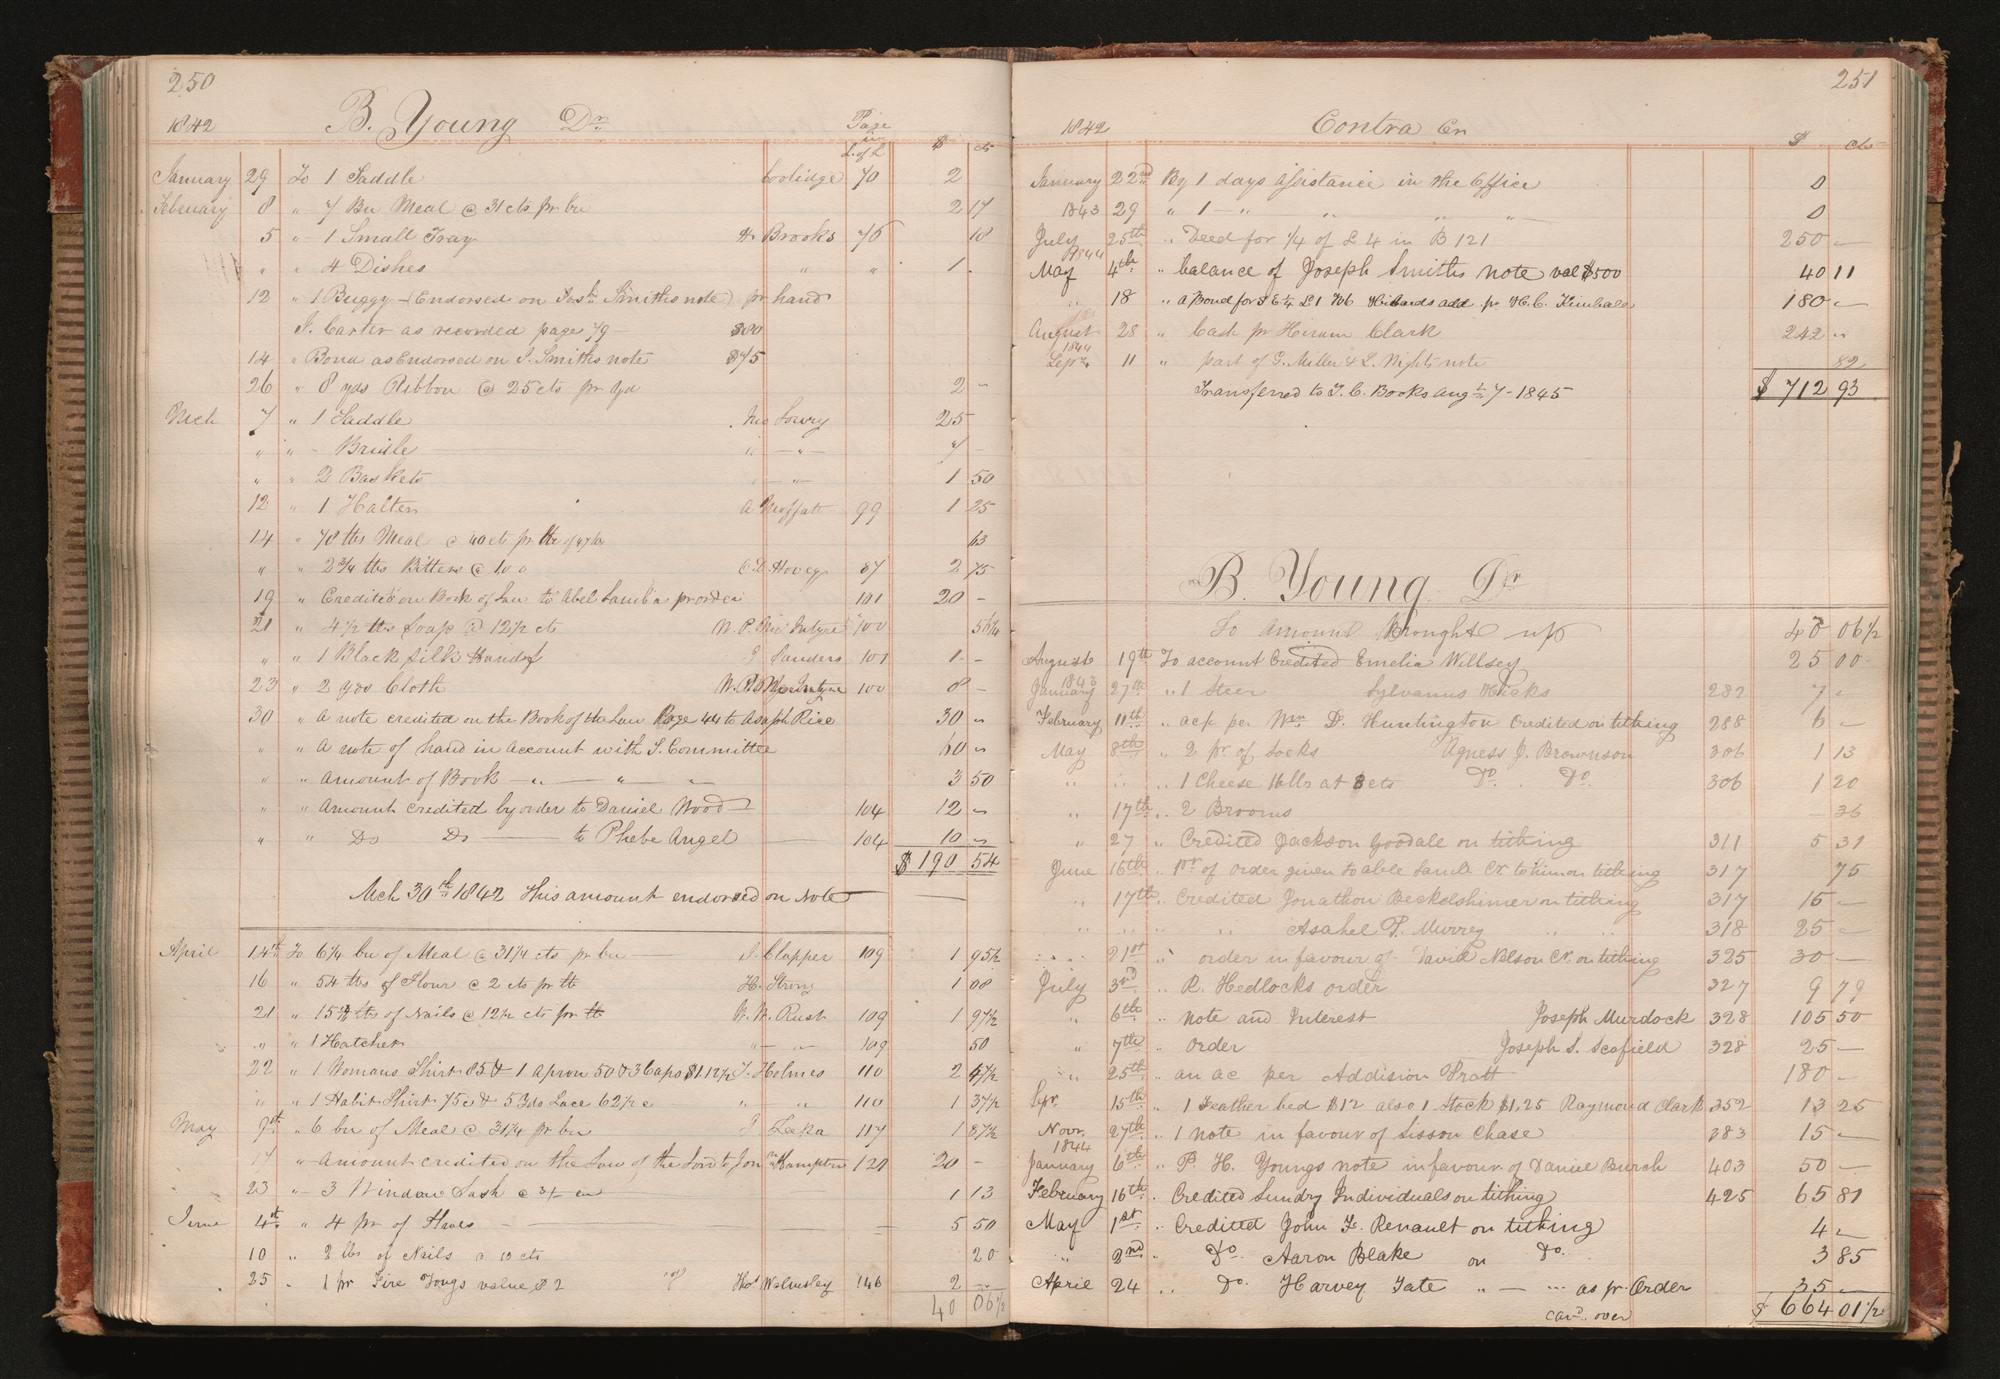 250
1842 B. Young Dr Page in L. of L $ cts
January 29 To 1 Saddle Coolidge 70 2
February 8 " 7 Bu Meal @ 31 cts pr bu 2 17
5 " 1 Small Tray H Brooks 76 18
" " 4 Dishes " " 1
12 " 1 Buggy (Endorsed on Josh Smiths note) pr hand
J. Carter as recorded page 79 300
14 " Bond as Endorsed on J. Smiths note 875
26 " 8 yds Ribbon @ 25 cts pr yd 2 -
Mch 7 " 1 Saddle Lowry 25
" " - Bridle " - " - 7 -
" " 2 Baskets " - " - 1 50
12 " 1 Halter A Moffatt 99 1 25
14 " 78 lbs Meal @ 40 cts pr 63
" " 2 3/4 lbs Bitters @ 100 O. D. Hovey 87 2 75
19 " Credited on Book of Law to Abel Lamb pr order 101 20 -
21 " 4 1/2 lbs Soap @ 12 1/2 cts W. P. McIntyre 100 56 1/4
" " 1 Black Silk Handf Sanders 101 1 -
23 " 2 yds Cloth W. P. McIntyre 100 8 -
30 " A note credited on the Book of the Law Page 44 to Asaph Rice 30 "
" " A note of hand in account with T. Committee 60 "
" " Amount of Book - " - " - " 3 50
" " Amount credited by order to Daniel Wood 104 12 "
" " Do Do to Phebe Angel 104 10 "
$ 190 54
Mch 30th 1842 This amount endorsed on Note
April 14th To 6 1/4 bu of Meal @ 31 1/4 cts pr bu J. Clapper 109 1 95 1/2
16 " 54 lbs of Flour @ 2 cts pr lb H. Strong 1 08
21 " 15 3/4 lbs of Nails @ 12 1/2 cts pr lb W. W. Rust 109 1 97 1/2
" " 1 Hatchet " - " - 109 50
22 " 1 Womans Shirt 85 & 1 Apron 50 & 3 Caps $1.12 1/2 J. Holmes 110 2 47 1/2
" " 1 Habit Shirt 75 c & 5 yds Lace 62 1/2 c " " 110 1 37 1/2
May 9st " 6 bu of Meal @ 31 1/4 pr bu J Leeka 117 1 87 1/2
17 " Amount credited on the Law of the Lord to Jonn Hampton 121 20 -
23 " 3 Window Sash @ 3/- ea 1 13
June 4st " 4 pr of Shoes 5 50
10 " 2 lbs of Nails a 10 cts 20
25 " 1 pr Fire Tongs value $2 Thos Walmsley 146 2 -
40 06 1/2
251
1842 Contra Cr $ cts
January 22nd By 1 days Assistance in the Office 0
1843 29 " 1 - " " " " 0
July 25th " Deed for 1/4 of L 4 in B 121 250 -
1844
May 4th " balance of Joseph Smiths note val $500 40 11
" 18 " a Bond for S E 1/4 L 1 Hibbards add pr H. C. Kimball 180 -
August 28 " Cash pr Hiram Clark 242 "
1844
Sepr 11 " part of G. Miller & L. Nights note 82
$ 712 93
Transferred to T. C. Books Aug 7 - 1845
B. Young Dr
To Amount Brought up 40 06 1/2
August 19th To account Credited Emelia Willsey 25 00
1843
January 27th " 1 Steer Sylvanus Hicks 282 7 -
February 11th " acpt per Wm D. Huntington Credited on tithing 288 6 -
May 8th " 2 pr. of Socks Agness J. Brownson 306 1 13
" " " 1 Cheese 16 lbs at 8 cts Do. Do. 306 1 20
" 17th " 2 Brooms - 36
" 27 " Credited Jackson Goodale on tithing 311 5 31
June 16th " Pr of order given to able Lamb Cr to him on tithing 317 75
" 17th " Credited Jonathon Beckelshimer on tithing 317 15 -
" " " " " Asahel P. Murrey " " 318 25 -
" " 21st " order in favour of David Nelson Cr. on tithing 325 30 -
July 3rd " R. Hedlocks order 327 9 79
" 6th " note and Interest Joseph Murdock 328 105 50
" 7th " order Joseph S. Scofield 328 25 -
" 25th " an ac per Addision Pratt 180 -
Sepr. 15th " 1 Feather bed $12 also 1 Stock $1,25 Raymond Clark 352 13 25
Novr. 27th " 1 note in favour of Sisson Chase 383 15 -
1844
January 6th " P. H. Youngs note in favour of Daniel Burch 403 50 -
February 16th " Credited Sundry Individuals on tithing 425 65 81
May 1st " Credited John F. Renault on tithing 4 -
" 2nd " Do. Aaron Blake on Do. 3 85
April 24 " Do. Harvey Tate " - " as pr. Order 35 -
card. over $ 664 01 1/2